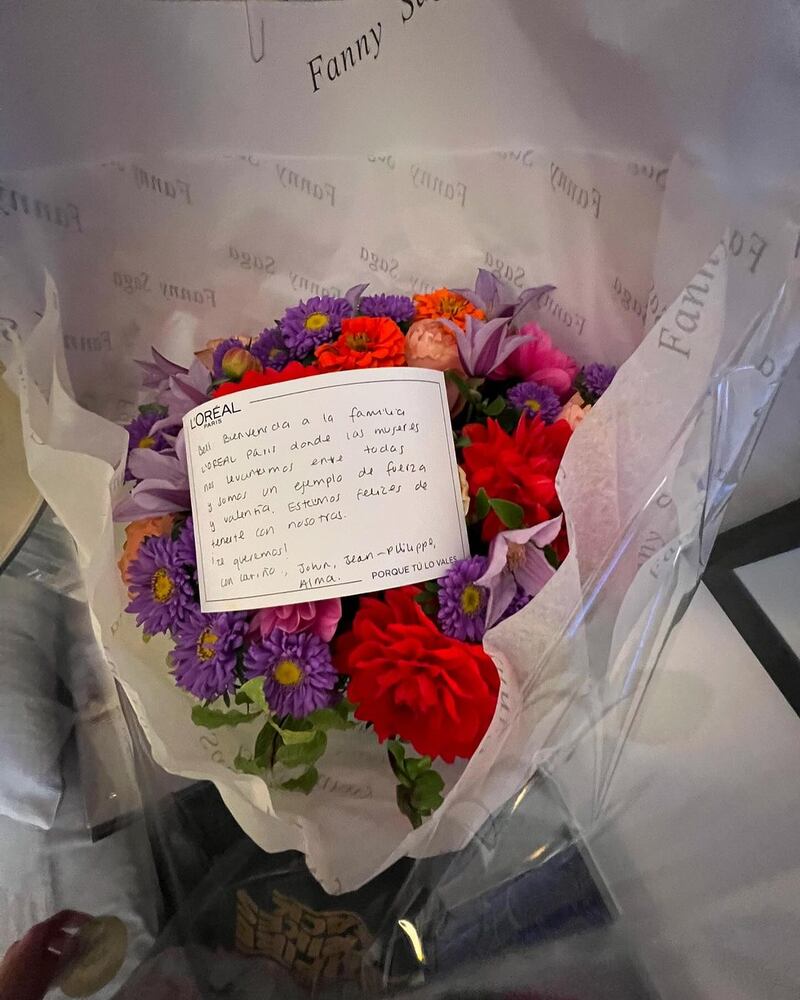 Fanny Saga
Fanny
Fanny
Fanny
Fanny
Fanny
Saga
Saga
Saga
Fanny Saga
Fanny
L'ORÉAL
PARIS
Bell Bienvenida a la familia
L'OREAL Paris donde las mujeres
nos levantamos entre todas
y somos un ejemplo de fuerza
y valentía. Estamos felices de
tenerte con nosotras.
Te queremos!
Con cariño, John, Jean-Philippe,
Alma.
PORQUE TÚ LO VALES